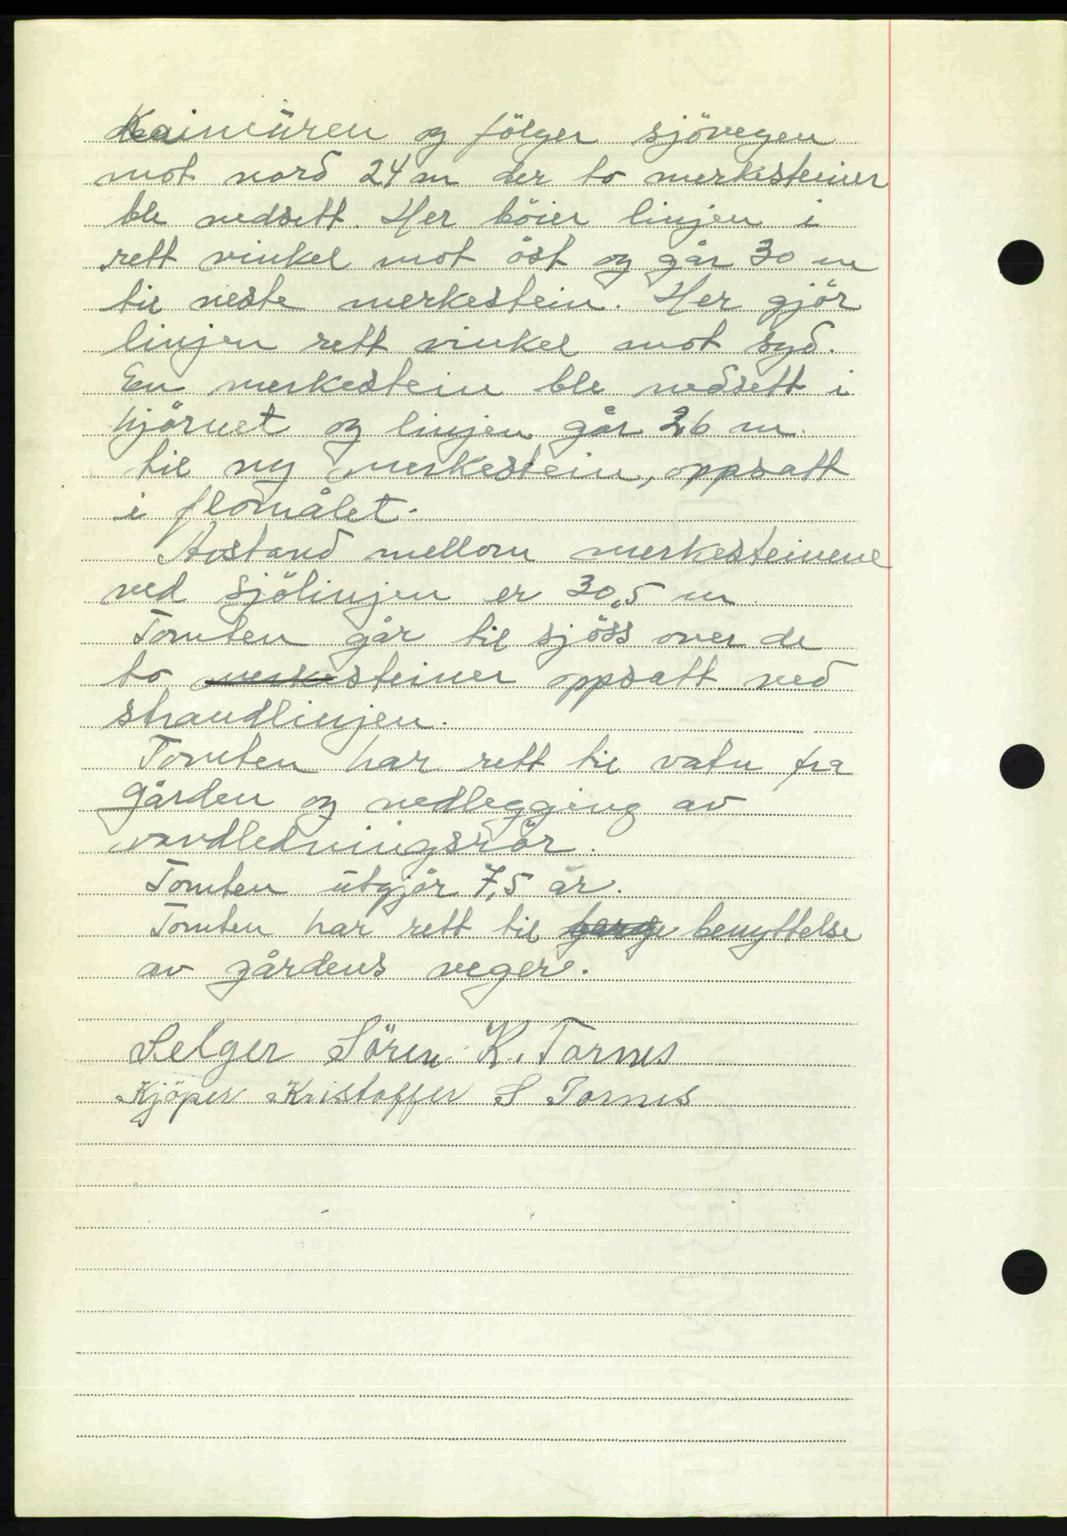 Kaimüren og følger sjövegen
mot nord 24 m der to merkesteiner
ble nedsett. Her böier linjen i
rett vinkel mot öst og går 30 m
til neste merkestein. Her gjör
linjen rett vinkel mot syd.
En merkestein ble nedsett i
hjörnet og linjen går 26 m
til ny merkestein, oppsatt
i flomålet.
Avstand mellom merkesteinene
ved sjölinjen er 30,5 m
Tomten går til sjöss over de
to merkesteiner oppsatt ved
strandlinjen.
Tomten har rett til vatn fra
gården og nedlegging av
vandledningsrör.
Tomten utgjör 7,5 ar.
Tomten har rett til benyttelse
av gårdens veger.
Selger Sören K. Tornes
Kjöper Kristoffer S Tornes